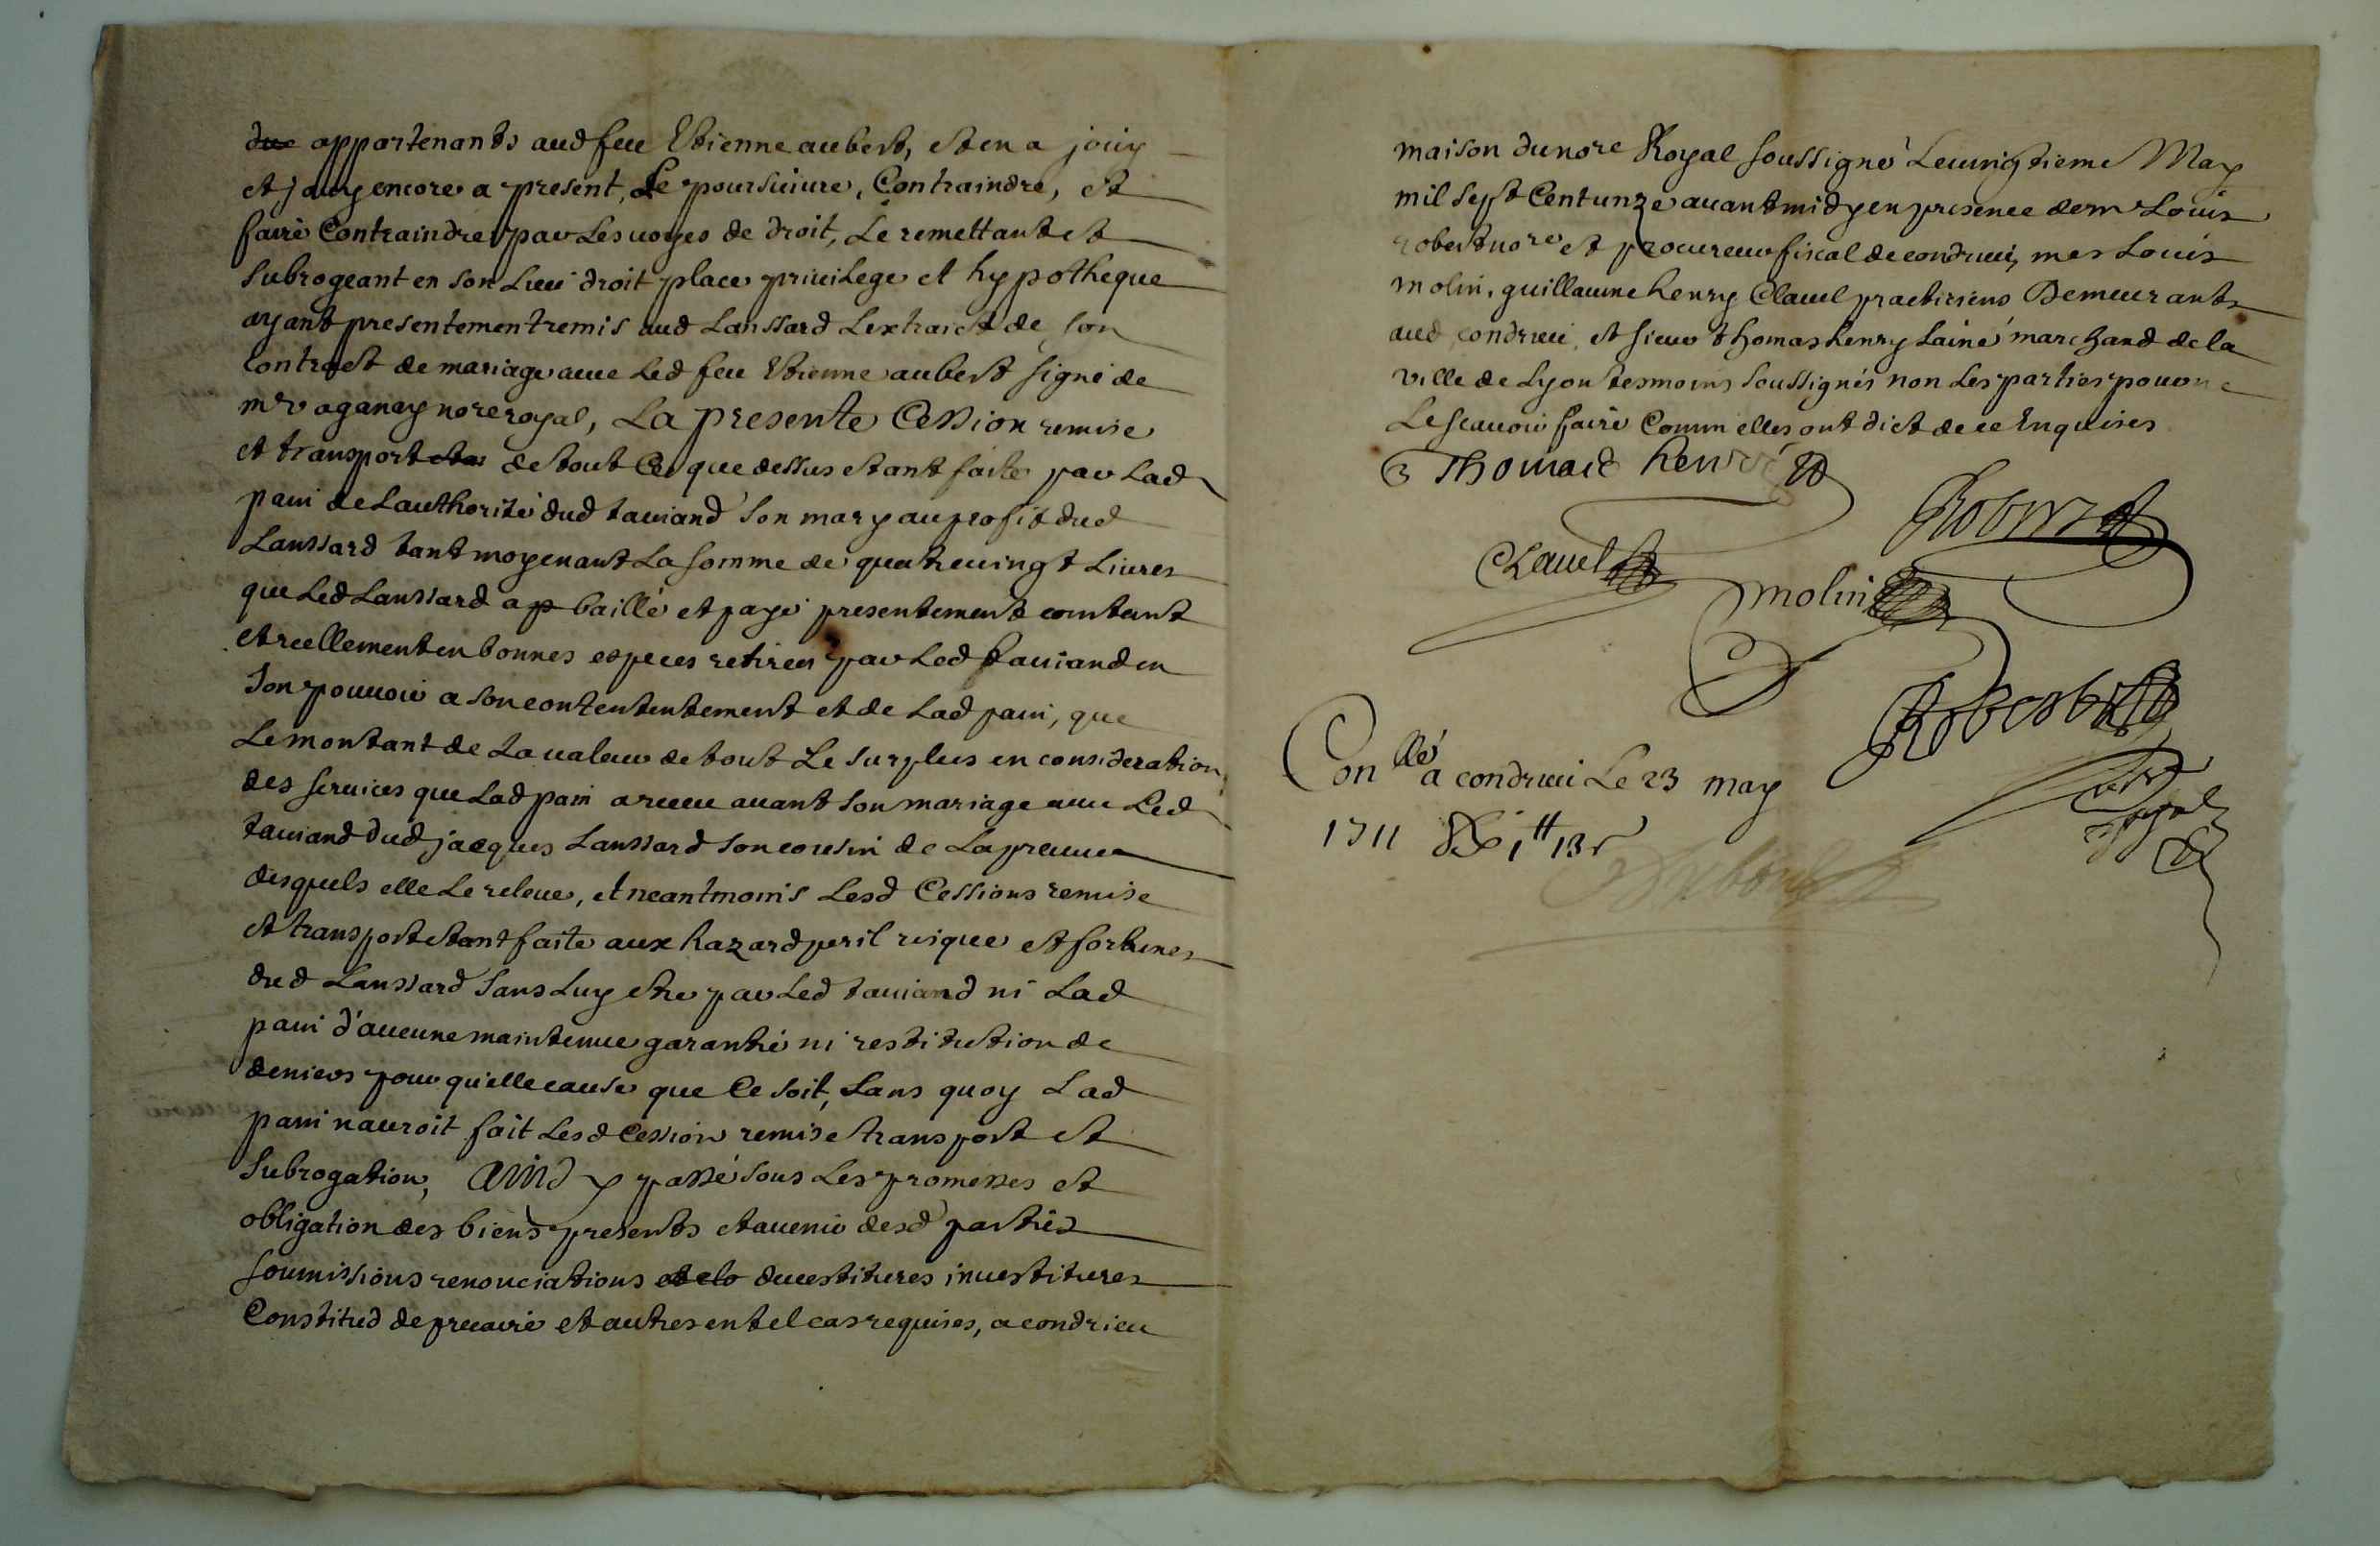 due appartenants aud feu Etienne aubert, et en a jouy
et jouy encore a present, Le poursuiure, Contraindre, et
faire Contraindre par Les uoyes de droit, Le remettant et
Subrogeant en son Lieu droit place priuilege et hypotheque
ayant presentement remis aud Lanssard Lextraict de son
Contract de mariage auec Led feu Etienne aubert signé de
mr aganay nore royal, La presente Cession remise
et transport de tout Ce que dessus etant faite par Lad
paui de Lauthorité dud tauiand son mary au profit dud
Lanssard tant moyenant La somme de quatreuingt Liures
que Led Lanssard a baillé et payé presentement contant
et reellement en bonnes especes retirees par Led tauiand en
Son pouuoir a son contententement et de Lad paui, que
Le montant de La ualeur de tout Le surplus en consideration
des seruices que Lad paui a receu auant son mariage auec Led
tauiand dud jacques Lanssard son cousin de La preuue
desquels elle Le releue, et neantmoins Lesd Cessions remise
et transport etant faite aux hazard peril risque et fortunes
dud Lanssard Sans Luy etre par Led tauiand ni Lad
paui d'aucune maintenue garantie ni restitution de
deniers pour quelle cause que Ce soit, Sans quoy Lad
paui nauroit fait Lesd Cession remise transport et
Subrogation, Ainsy passé sous Les promesses et
obligation des biens presents et auenir desd parties
soumissions renonciations deuestitures inuestitures
Constitud de precaire et autres en tel cas requises, a condrieu
maison du nore Royal soussigné Le uingtieme May
mil sept Cent unze auant midy en presence de mr Louis
robert nore et procureur fiscal de condrieu, mes Louis
molin, guillaume henry Clauel practiciens Demeurants
aud condrieu, et sieur thomas henry Lainé marchand de la
ville de Lyon tesmoins soussignés non Les parties pour ne
Le scauoir faire Comm elles ont dict de ce Enquises
Thomas henry
Robert
Clauel
molin
Robert
nore
royal
Conllé a condrieu Le 23 may
1711